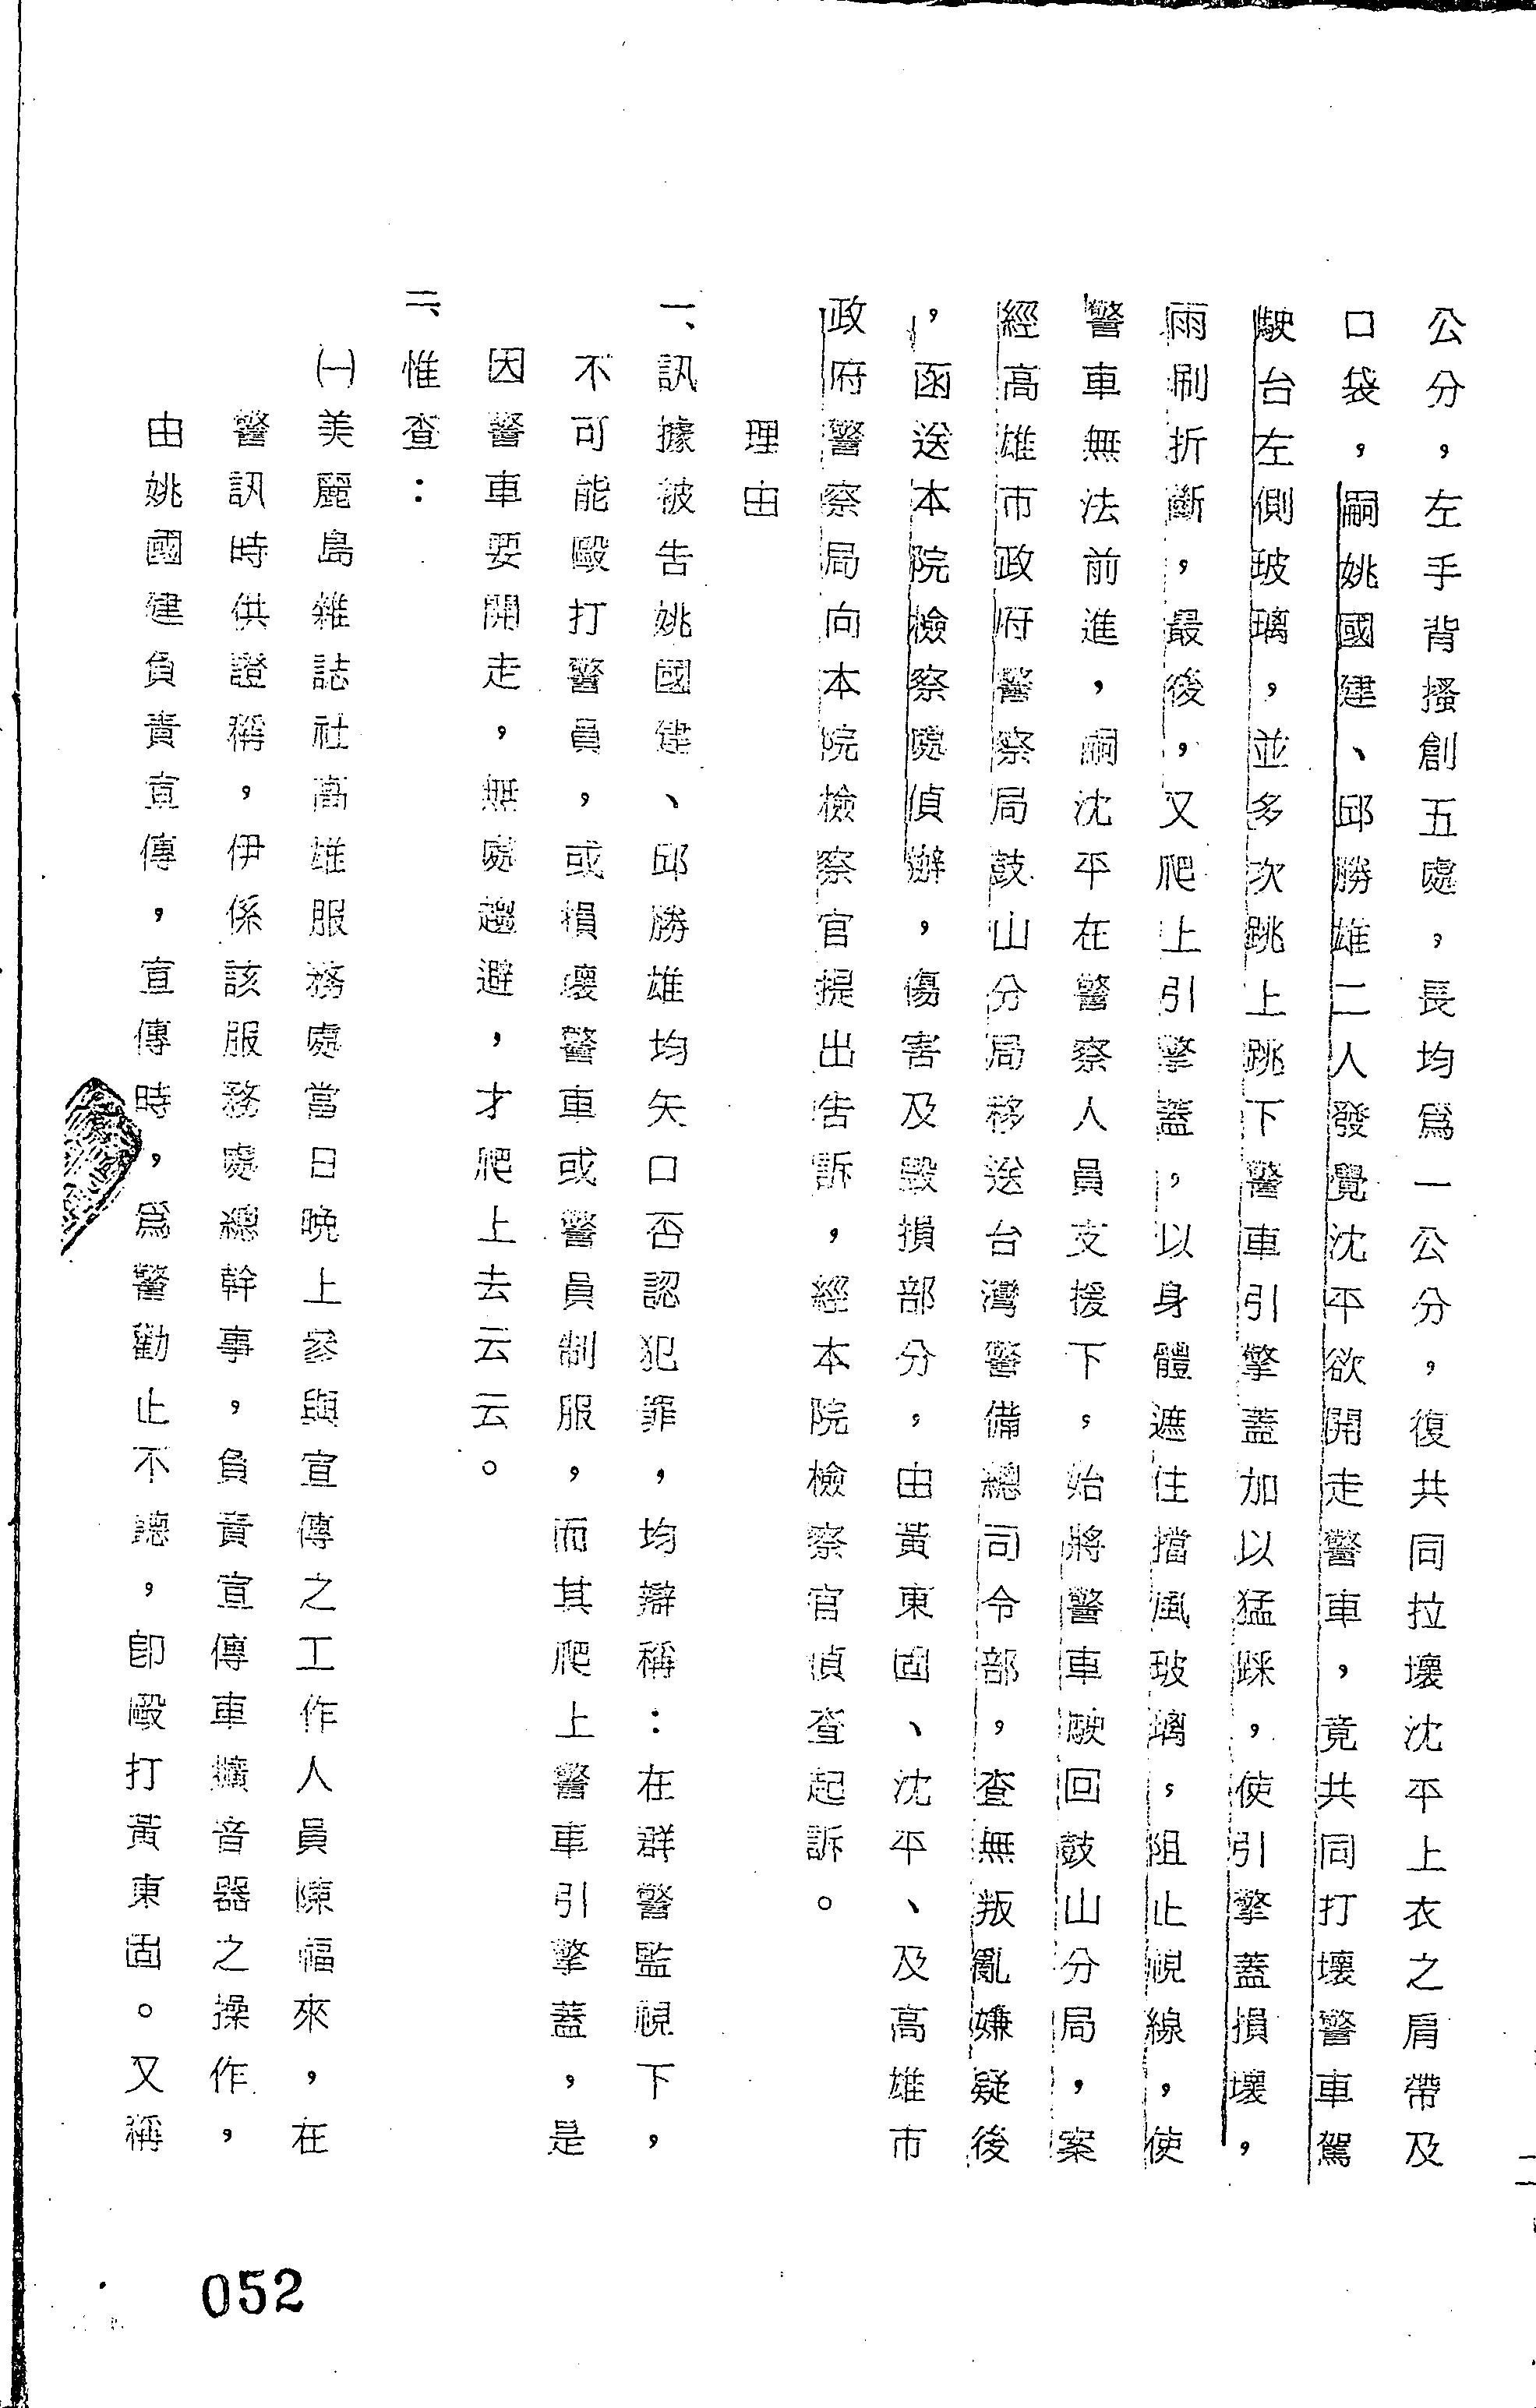 公分，左手背搔創五處，長均爲一公分，復共同拉壞沈平上衣之肩帶及
口袋，嗣姚國建、邱勝雄二人發覺沈平欲開走警車，竟共同打壞警車駕
駛台左側玻璃，並多次跳上跳下警車引擎蓋加以猛踩，使引擎蓋損壞，
雨刷折斷，最後，又爬上引擎蓋，以身體遮住擋風玻璃，阻止視線，使
警車無法前進，嗣沈平在警察人員支援下，始將警車駛回鼓山分局，案
經高雄市政府警察局鼓山分局移送台灣警備總司令部，查無叛亂嫌疑後
，函送本院檢察處偵辦，傷害及毀損部分，由黃東固、沈平、及高雄市
政府警察局向本院檢察官提出告訴，經本院檢察官偵查起訴。
理由
一、訊據被告姚國建、邱勝雄均矢口否認犯罪，均辯稱：在群警監視下，
不可能毆打警員，或損壞警車或警員制服，而其爬上警車引擎蓋，是
因警車要開走，無處趨避，才爬上去云云。
二、惟查：
㈠美麗島雜誌社高雄服務處當日晚上參與宣傳之工作人員陳福來，在
警訊時供證稱，伊係該服務處總幹事，負責宣傳車擴音器之操作，
由姚國建負責宣傳，宣傳時，爲警勸止不聽，卽毆打黃東固。又稱
052